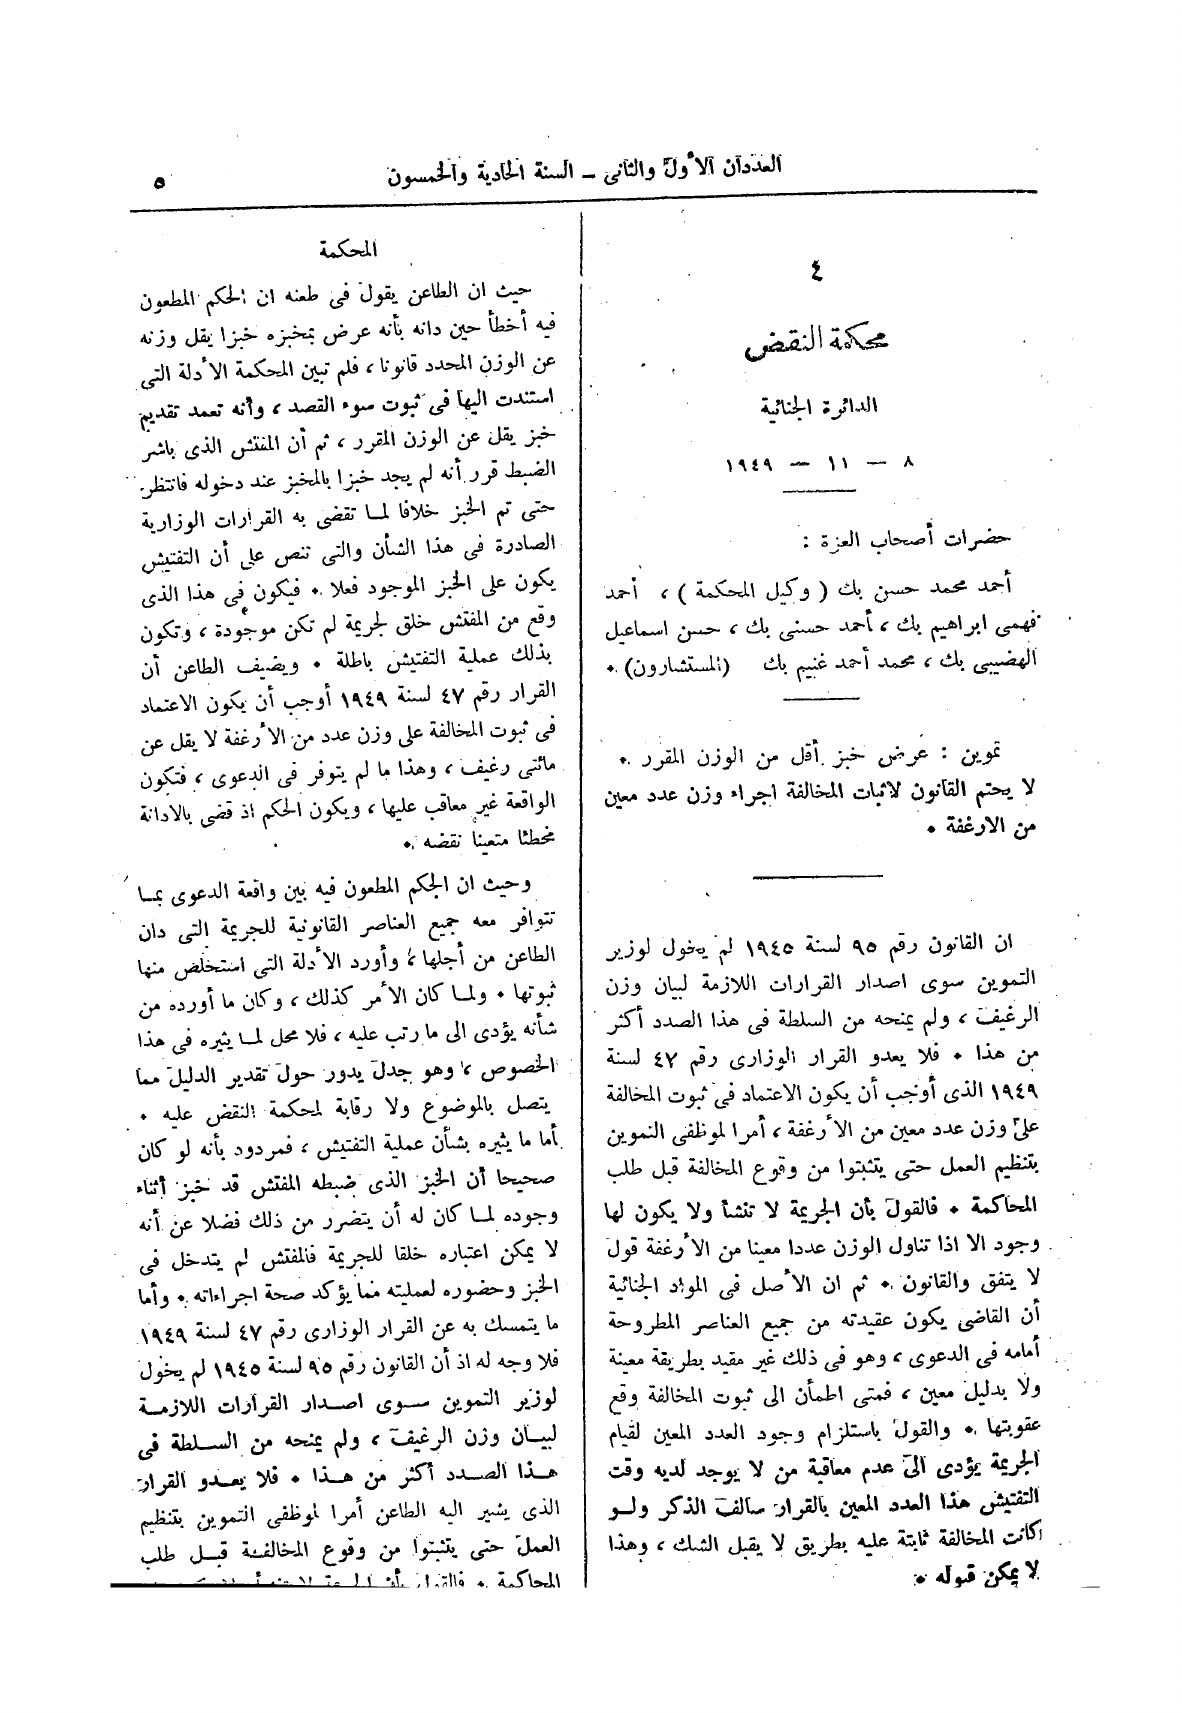 العددان الأول والثانى – السنة الحادية والخمسون
٥
٤
محكمة النقض
الدائرة الجنائية
٨ – ١١ – ١٩٤٩
حضرات أصحاب العزة :
أحمد محمد حسن بك ( وكيل المحكمة ) ، أحمد
فهمى ابراهيم بك ، أحمد حسنى بك ، حسن اسماعيل
الهضيبى بك ، محمد أحمد غنيم بك (المستشارون) .
تموين : عرض خبز أقل من الوزن المقرر .
لا يحتم القانون لاثبات المخالفة اجراء وزن عدد معين
من الارغفة .
ان القانون رقم ٩٥ لسنة ١٩٤٥ لم يخول لوزير
التموين سوى اصدار القرارات اللازمة لبيان وزن
الرغيف ، ولم يمنحه من السلطة فى هذا الصدد أكثر
من هذا . فلا يعدو القرار الوزارى رقم ٤٧ لسنة
١٩٤٩ الذى أوجب أن يكون الاعتماد فى ثبوت المخالفة
على وزن عدد معين من الأرغفة ، أمرا لموظفى التموين
بتنظيم العمل حتى يتثبتوا من وقوع المخالفة قبل طلب
المحاكمة . فالقول بأن الجريمة لا تنشأ ولا يكون لها
وجود الا اذا تناول الوزن عددا معينا من الأرغفة قول
لا يتفق والقانون . ثم ان الأصل فى المواد الجنائية
أن القاضى يكون عقيدته من جميع العناصر المطروحة
أمامه فى الدعوى ، وهو فى ذلك غير مقيد بطريقة معينة
ولا بدليل معين ، فمتى اطمأن الى ثبوت المخالفة وقع
عقوبتها . والقول باستلزام وجود العدد المعين لقيام
الجريمة يؤدى الى عدم معاقبة من لا يوجد لديه وقت
التفتيش هذا العدد المعين بالقرار سالف الذكر ولو
كانت المخالفة ثابتة عليه بطريق لا يقبل الشك ، وهذا
لا يمكن قبوله .
المحكمة
حيث ان الطاعن يقول فى طعنه ان الحكم المطعون
فيه أخطأ حين دانه بأنه عرض بمخبزه خبزا يقل وزنه
عن الوزن المحدد قانونا ، فلم تبين المحكمة الأدلة التى
استندت اليها فى ثبوت سوء القصد ، وأنه تعمد تقديم
خبز يقل عن الوزن المقرر ، ثم أن المفتش الذى باشر
الضبط قرر أنه لم يجد خبزا بالمخبز عند دخوله فانتظر
حتى تم الخبز خلافا لما تقضى به القرارات الوزارية
الصادرة فى هذا الشأن والتى تنص على أن التفتيش
يكون على الخبز الموجود فعلا . فيكون فى هذا الذى
وقع من المفتش خلق لجريمة لم تكن موجودة ، وتكون
بذلك عملية التفتيش باطلة . ويضيف الطاعن أن
القرار رقم ٤٧ لسنة ١٩٤٩ أوجب أن يكون الاعتماد
فى ثبوت المخالفة على وزن عدد من الأرغفة لا يقل عن
مائتى رغيف ، وهذا ما لم يتوفر فى الدعوى ، فتكون
الواقعة غير معاقب عليها ، ويكون الحكم اذ قضى بالادانة
مخطئا متعينا نقضه .
وحيث ان الحكم المطعون فيه بين واقعة الدعوى بما
تتوافر معه جميع العناصر القانونية للجريمة التى دان
الطاعن من أجلها ، وأورد الأدلة التى استخلص منها
ثبوتها . ولما كان الأمر كذلك ، وكان ما أورده من
شأنه يؤدى الى ما رتب عليه ، فلا محل لما يثيره فى هذا
الخصوص ، وهو جدل يدور حول تقدير الدليل مما
يتصل بالموضوع ولا رقابة لمحكمة النقض عليه .
أما ما يثيره بشأن عملية التفتيش ، فمردود بأنه لو كان
صحيحا أن الخبز الذى ضبطه المفتش قد خبز أثناء
وجوده لما كان له أن يتضرر من ذلك فضلا عن أنه
لا يمكن اعتباره خلقا للجريمة فالمفتش لم يتدخل فى
الخبز وحضوره لعمليته مما يؤكد صحة اجراءاته . وأما
ما يتمسك به عن القرار الوزارى رقم ٤٧ لسنة ١٩٤٩
فلا وجه له اذ أن القانون رقم ٩٥ لسنة ١٩٤٥ لم يخول
لوزير التموين سوى اصدار القرارات اللازمة
لبيان وزن الرغيف ، ولم يمنحه من السلطة فى
هذا الصدد أكثر من هذا . فلا يعدو القرار
الذى يشير اليه الطاعن أمرا لموظفى التموين بتنظيم
العمل حتى يتثبتوا من وقوع المخالفة قبل طلب
المحاكمة . فالقول بأن